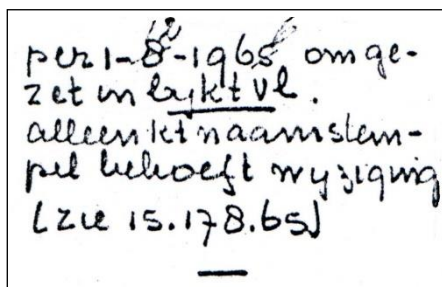 per 1-8-1965 omge-
zet in bykt vl.
alleen kt naamstem-
pel behoeft wyziging
(zie 15.178.65)